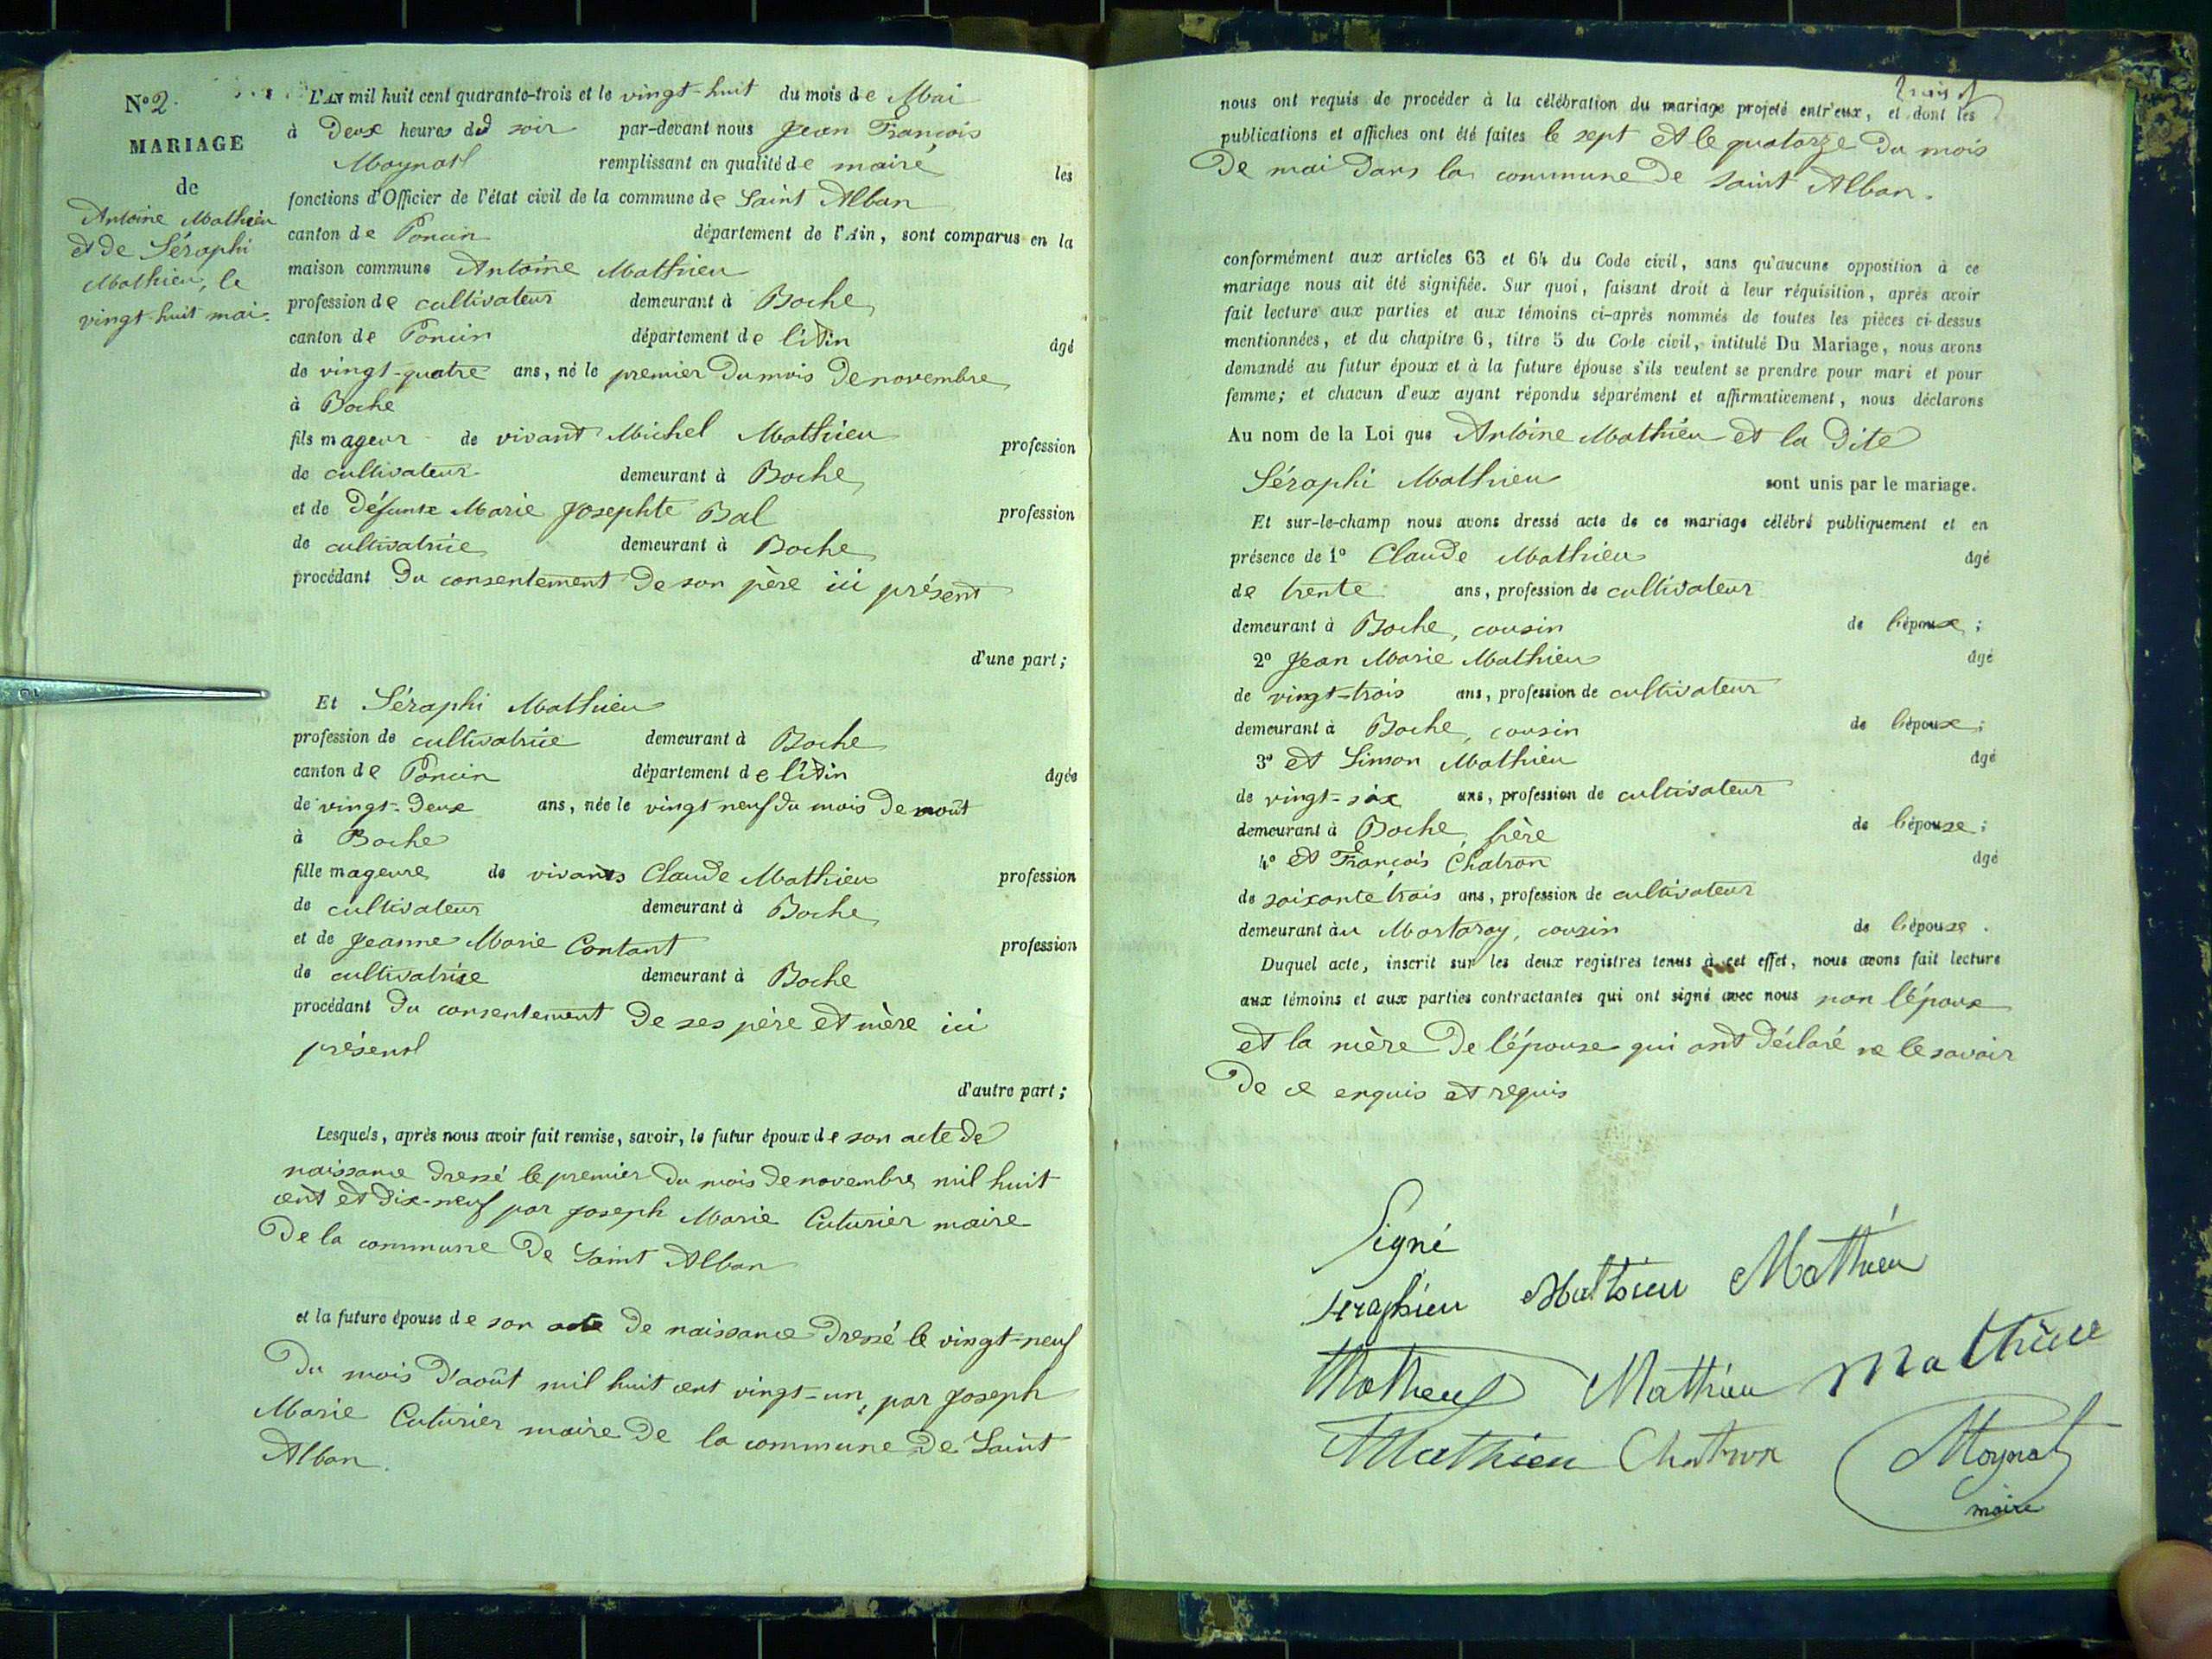 N° 2.
MARIAGE
de
Antoine Mathieu
et de Séraphi
Mathieu, le
vingt-huit mai.
L'AN mil huit cent quarante-trois et le vingt-huit du mois de Mai
à Deux heures du soir par-devant nous Jean François
Moynat remplissant en qualité de maire les
fonctions d'Officier de l'état civil de la commune de Saint Alban
canton de Poncin département de l'Ain, sont comparus en la
maison commune Antoine Mathieu
profession de cultivateur demeurant à Boche
canton de Poncin département de l'Ain âgé
de vingt-quatre ans, né le premier du mois de novembre
à Boche
fils mageur de vivant Michel Mathieu profession
de cultivateur demeurant à Boche
et de défunte Marie Josephte Bal profession
de cultivatrice demeurant à Boche
procédant du consentement de son père ici présent
d'une part;
Et Séraphi Mathieu
profession de cultivatrice demeurant à Boche
canton de Poncin département de l'Ain âgée
de vingt-deux ans, née le vingt neuf du mois de août
à Boche
fille mageure de vivants Claude Mathieu profession
de cultivateur demeurant à Boche
et de Jeanne Marie Contant profession
de cultivatrice demeurant à Boche
procédant du consentement de ses père et mère ici
présent
d'autre part;
Lesquels, après nous avoir fait remise, savoir, le futur époux de son acte de
naissance dressé le premier du mois de novembre mil huit
cent et dix-neuf par Joseph Marie Cuturier maire
de la commune de Saint Alban
et la future épouse de son acte de naissance dressé le vingt-neuf
du mois d'août mil huit cent vingt-un, par Joseph
Marie Cuturier maire de la commune de Saint
Alban.
nous ont requis de procéder à la célébration du mariage projeté entr'eux, et dont les
publications et affiches ont été faites le sept et le quatorze du mois
de mai dans la commune de saint Alban.
conformément aux articles 63 et 64 du Code civil, sans qu'aucune opposition à ce
mariage nous ait été signifiée. Sur quoi, faisant droit à leur réquisition, après avoir
fait lecture aux parties et aux témoins ci-après nommés de toutes les pièces ci-dessus
mentionnées, et du chapitre 6, titre 5 du Code civil, intitulé Du Mariage, nous avons
demandé au futur époux et à la future épouse s'ils veulent se prendre pour mari et pour
femme; et chacun d'eux ayant répondu séparément et affirmativement, nous déclarons
Au nom de la Loi que Antoine Mathieu et la dite
Séraphi Mathieu sont unis par le mariage.
Et sur-le-champ nous avons dressé acte de ce mariage célébré publiquement et en
présence de 1° Claude Mathieu âgé
de trente ans, profession de cultivateur
demeurant à Boche, cousin de l'époux;
2° Jean Marie Mathieu âgé
de vingt-trois ans, profession de cultivateur
demeurant à Boche, cousin de l'époux;
3° et Simon Mathieu âgé
de vingt-six ans, profession de cultivateur
demeurant à Boche, frère de l'épouse;
4° et François Chatron âgé
de soixante trois ans, profession de cultivateur
demeurant àu Mortaray, cousin de l'épouse.
Duquel acte, inscrit sur les deux registres tenus à cet effet, nous avons fait lecture
aux témoins et aux parties contractantes qui ont signé avec nous non l'époux
et la mère de l'épouse qui ont déclaré ne le savoir
de ce enquis et requis
Signé
Seraphieu Mathieu Mathieu
Mathieu Mathieu Mathieu
Mathieu Chatron Moynat
maire